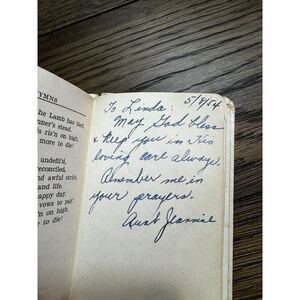 YMNS
the Lamb has bled,
nner's stead.
is ris'n on high,
e to die!
undefil'd,
reconciled,
nd awful strife,
and life.
happy day.
vows to pay.
n on high,
e to die!
5/8/54
To Linda:
May God bless
& keep you in His
loving care always.
Remember me in
your prayers.
Aunt Jeannine